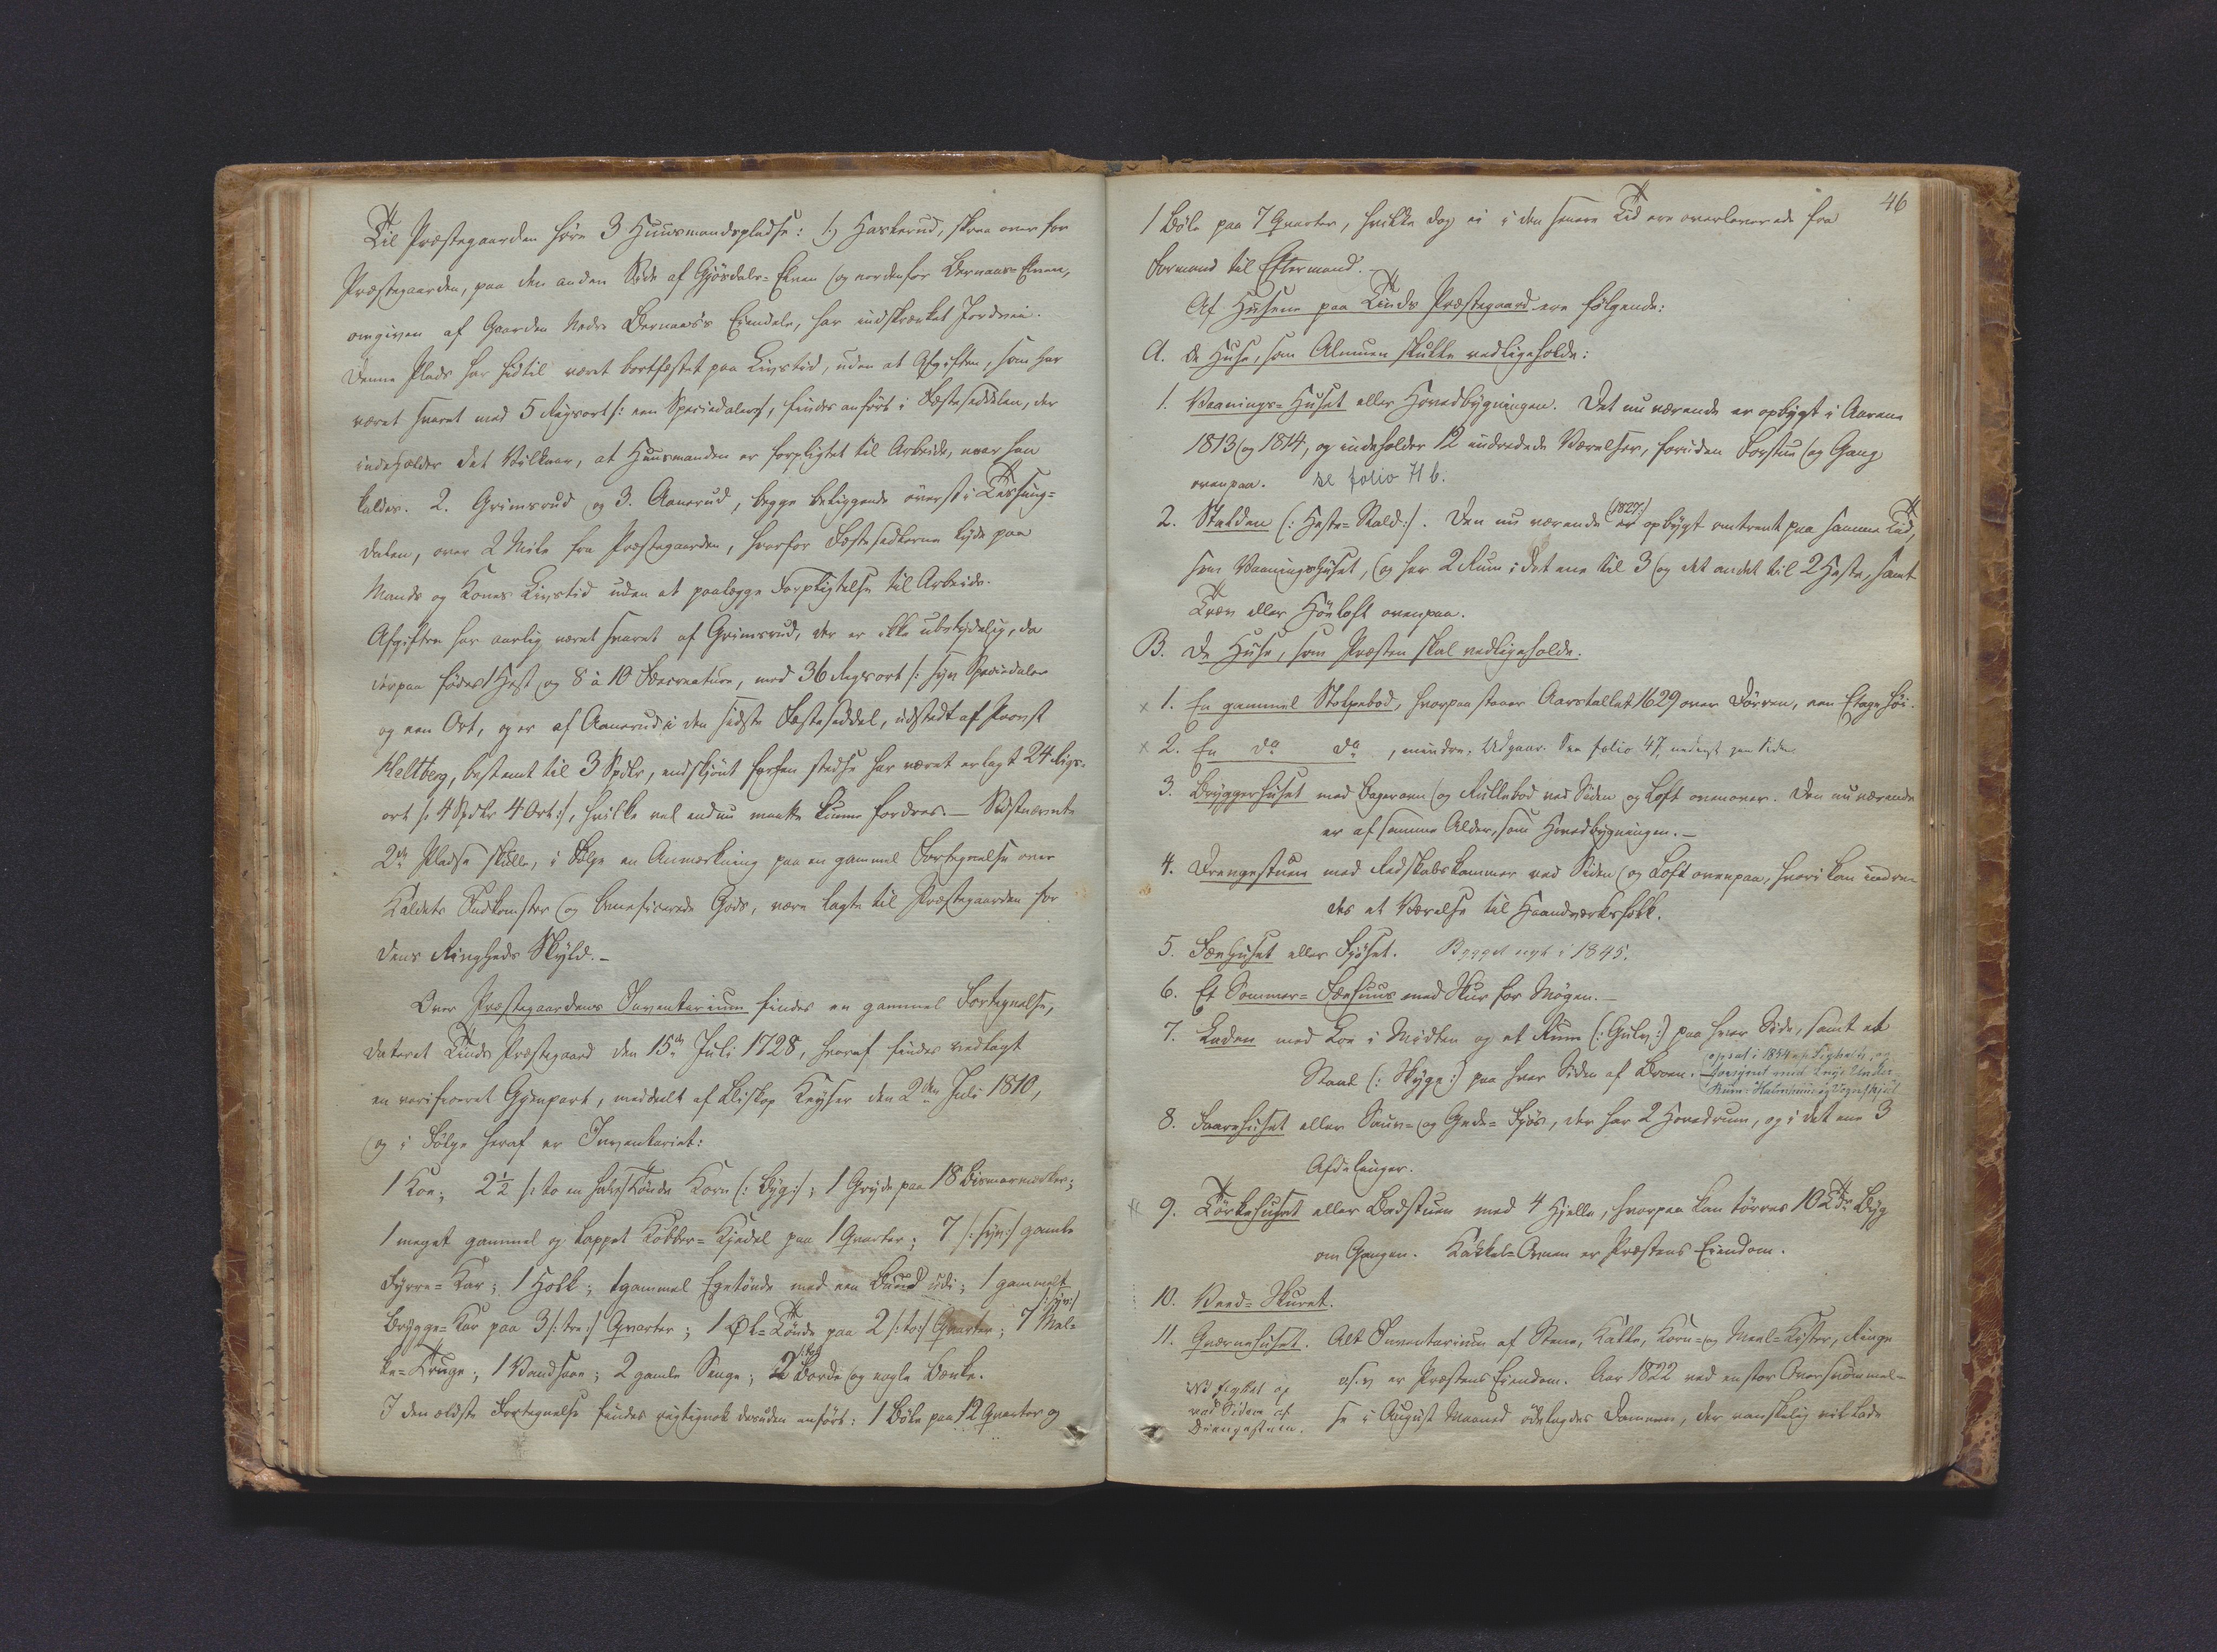 Til Præstegaarden høre 3 Huusmandspladse: 1, Haslerud, skraa over for
Præstegaarden, paa den anden Side af Gjösdals-Elven (og nordenfor Bernaas-Elven,
omgiven af Gaarden Nedre Bernaas's Eiendele, har indskrænket Jordvei.
Denne Plads har hidtil været bortfæstet paa Livstid, uden at Afgiften, som har
været svaret med 5 Rigsort /: een Speciedaler :/, findes anført i Fæsteseddelen, der
indeholder det Vilkaar, at Huusmanden er forpligtet til Arbeide, naar han
kaldes. 2. Grimsrud og 3. Aanerud, begge beliggende överst i Tessung-
dalen, over 2 Mile fra Præstegaarden, hvorfor Fæstesedlerne lyde paa
Mands og Kones Livstid uden at paalægge Forpligtelse til Arbeide.
Afgiften har aarlig været svaret af Grimsrud, der er ikke ubetydelig, da
derpaa födes 1 Hest og 8 à 10 Fæcreature, med 36 Rigsort /: syv Speciedaler
og een Ort, og er af Aanerud i den sidste Fæsteseddel, udstedt af Provst
Heltberg, bestemt til 3 Spdlr, endskjönt forhen stedse har været erlagt 24 Rigs-
ort /: 4 Spdlr 4 Ort :/, hvilke vel endnu maatte kunne fordres. – Sidstnævnte
2de Pladse skulle, i Følge en Anmærkning paa en gammel Fortegnelse over
Kaldets Indkomster og beneficerede Gods, være lagte til Præstegaarden for
dens Ringheds Skyld. –
Over Præstegaardens Inventarium findes en gammel Fortegnelse,
dateret Tinds Præstegaard den 15de Juli 1728, hvoraf findes vedlagt
en verificeret Gjenpart, meddeelt af Biskop Keyser den 2den Juli 1810,
og i Følge heraf er Inventariet:
1 Koe; 2½ /: to en halv :/ Tønde Korn (: Byg :/; 1 Gryde paa 18 Bismermerker;
1 meget gammel og lappet Kobber-Kjedel paa 1 Qvarter; 7 /: syv :/ gamle
Fyrre-Kar; 1 Holk; 1 gammel Egetönde med een Bund udi; 1 gammelt
Brygge-Kar paa 3 /: tre :/ Qvarter; 1 Øl-Tønde paa 2 /: to :/ Qvarter; 7 /: syv :/ Mel-
ke-Truge; 1 Vandsaae; 2 gamle Senge; 2 /: to :/ Borde og nogle Bænke.
I den ældste Fortegnelse findes rigtignok desuden anført: 1 Bøle paa 12 Qvarter og
46
1 Bøle paa 7 Qvarter, hvilke dog ei i den senere Tid ere overleverede fra
Formand til Eftermand. –
Af Husene paa Tinds Præstegaard ere følgende:
A. De Huse, som Almuen skulle vedligeholde:
1. Vaanings-Huset eller Hovedbygningen. Det nu værende er opbygt i Aarene
1813 og 1814, og indeholder 12 indredede Værelser, foruden Forstue og Gang
ovenpaa. se folio 71 b.
2. Stalden (: Heste-Stald :/. Den nu værende (1827) er opbygt omtrent paa samme Tid,
som Vaaningshuset, og har 2 Rum i det ene til 3 og det andet til 2 Heste, samt
Trev eller Höeloft ovenpaa.
B. De Huse, som Præsten skal vedligeholde.
x 1. En gammel Stolpebod, hvorpaa staaer Aarstallet 1629 over Dörren, een Etage höi.
x 2. En do do, mindre. Udgaar. See folio 47, nederst paa Siden.
3. Bryggerhuset med Bagerovn og Rullebod ved Siden og Loft ovenover. Den nu værende
er af samme Alder, som Hovedbygningen. –
4. Drengestuen med Redskabskammer ved Siden og Loft ovenpaa, hvori kan indre-
des et Værelse til Haandværksfolk.
5. Fæehuset eller Fjöset. Bygget nyt i 1845.
6. Et Sommer-Fæehuus med Skur for Mögen. –
7. Laden med Loe i Midten og et Rum (: Gulv :/ paa hver Side, samt et
Staal (: Skygge :/ paa hver Siden af Broen.
opsat i 1854 og
forsynet med Under-
Rum:
8. Faarehuset eller Sauv- og Gede-Fjös, der har 2 Hovedrum, og i det ene 3
Afdelinger.
9. Törkehuset eller Badstuen med 4 Hjelle, hvorpaa kan tørres 10 Tdr Byg
om Gangen. Kakkel-Ovnen er Præstens Eiendom.
10. Veed-Skuret.
11. Qværnehuset. Alt Inventarium af Stene, Kalle, Korn- og Meel-Kister, Ringe
o.s.v. er Præstens Eiendom. Aar 1822 ved en stor Oversvömmel-
se i August Maaned ödelagdes Dammen, der vanskelig vil lade
Nu bygget op
ved Siden af
Drengestuen.